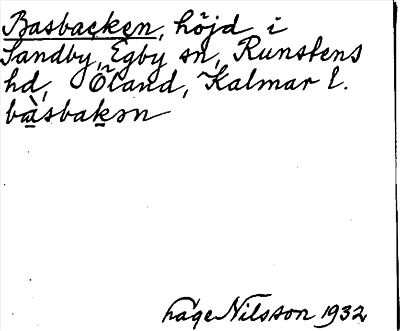 Basbacken, höjd i
Sandby, Egby sn, Runstens
hd, Öland, Kalmar l.
bàsbakən
Hage Nilsson 1932